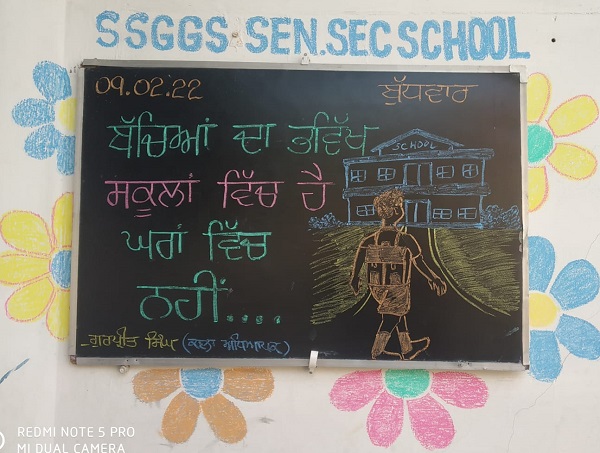 SSGGS. SEN. SEC SCHOOL
09.02.22 ਬੁੱਧਵਾਰ
ਬੱਚਿਆਂ ਦਾ ਭਵਿੱਖ
ਸਕੂਲਾਂ ਵਿੱਚ ਹੈ
ਘਰਾਂ ਵਿੱਚ
ਨਹੀਂ....
SCHOOL
-ਗੁਰਪ੍ਰੀਤ ਸਿੰਘ (ਕਲਾ ਅਧਿਆਪਕ)
REDMI NOTE 5 PRO
MI DUAL CAMERA